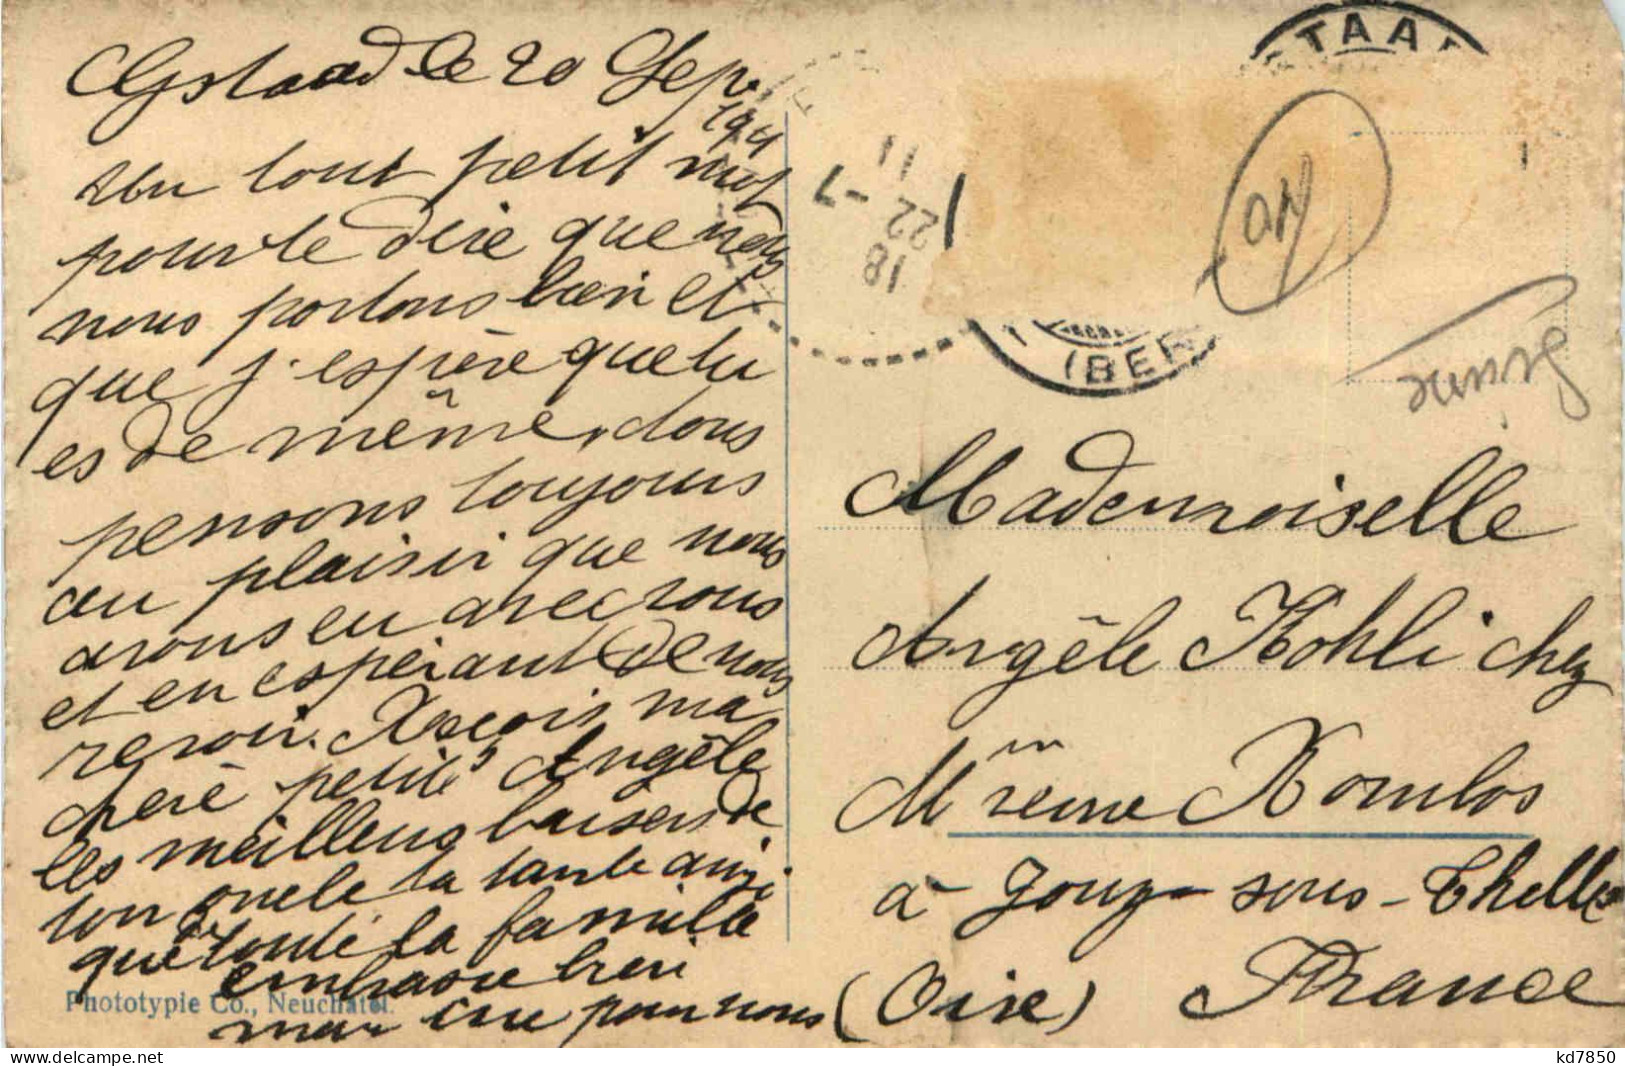 Gstaad le 20 Sep
1911
un tout petit mot
pour te dire que nous
nous portons bien et
que j'espère que tu
es de même, nous
pensons toujours
au plaisir que nous
avons eu avec vous
et en espérant de nous
revoir. Reçois ma
chere petite Angèle
les meilleurs baisers de
ton oncle ta tante ainsi
que toute la famille
embrasse bien
pour nous
Phototypie Co., Neuchatel.
STAAD
11
22 -7
18
(BER
Suisse
Mademoiselle
Angèle Kohli chez
Mme Romlos
à Jouy-sous-Thelle
(Oise) France
kd7850